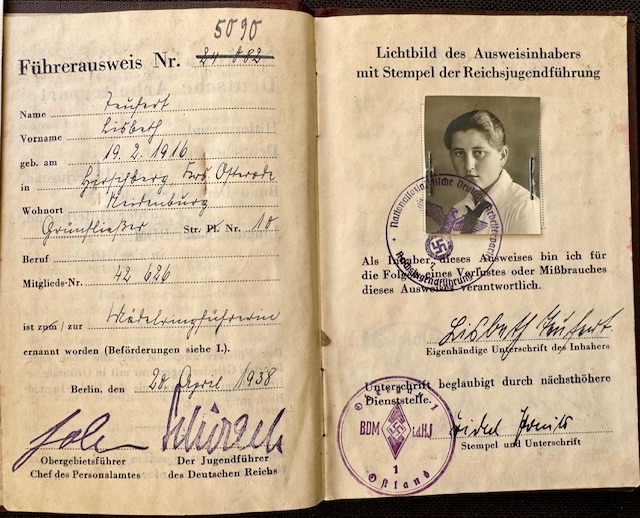 5090
Führerausweis Nr. 24 082
Name Teufert
Vorname Lisbeth
geb. am 19. 2. 1916
in Hirschberg Krs Osterode
Wohnort Neidenburg
Grünfließer Str. Pl. Nr. 10
Beruf
Mitglieds-Nr. 42 626
ist zum/zur Mädelringführerin
ernannt worden (Beförderungen siehe I.).
Berlin, den 20. April 1938
Obergebietsführer
Chef des Personalamtes
Der Jugendführer
des Deutschen Reichs
Lichtbild des Ausweisinhabers
mit Stempel der Reichsjugendführung
Nationalsozialistische Deutsche Arbeiterpartei
Reichsjugendführung
Als Inhaber dieses Ausweises bin ich für
die Folgen eines Verlustes oder Mißbrauches
dieses Ausweises verantwortlich.
Lisbeth Teufert
Eigenhändige Unterschrift des Inhabers
Unterschrift beglaubigt durch nächsthöhere
Dienststelle.
BDM i.d.HJ
1
Ostland
Stempel und Unterschrift